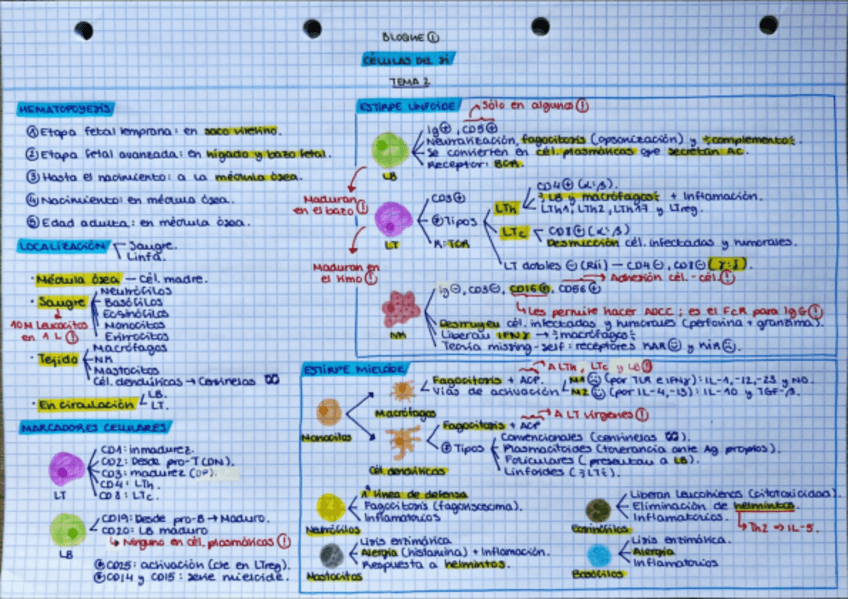 BLOQUE ①
CÉLULAS DEL SI
TEMA 2
HEMATOPOYESIS
① Etapa fetal temprana: en saco vitelino.
② Etapa fetal avanzada: en hígado y bazo fetal.
③ Hasta el nacimiento: a la médula ósea.
④ Nacimiento: en médula ósea.
⑤ Edad adulta: en médula ósea.
LOCALIZACIÓN
Sangre.
Linfa.
· Médula ósea — Cél. madre.
· Sangre
Neutrófilos
Basófilos
Eosinófilos
Monocitos
Eritrocitos
10M Leucocitos
en 1 L !
· Tejido
Macrófagos
NK
Mastocitos
Cél. dendríticas → Centinelas
· En circulación
LB.
LT.
MARCADORES CELULARES
LT
CD1: inmadurez.
CD2: Desde pro-T (DN).
CD3: madurez (DP).
CD4: LTh.
CD8: LTc.
LB
CD19: Desde pro-B → Maduro.
CD20: LB maduro
↳ Ninguno en cél. plasmáticas !
CD25: activación (cte en LTreg).
CD14 y CD15: serie mieloide.
ESTIRPE LINFOIDE
Sólo en algunos !
LB
Ig⊕, CD5⊕
Neutralización, fagocitosis (opsonización) y complemento.
Se convierten en cél. plasmáticas que secretan AC.
Receptor: BCR.
Maduran
en el bazo !
LT
CD3⊕
② Tipos
R: TCR
LTh
CD4⊕ (α:β).
LB y macrófagos + Inflamación.
LTh1, LTh2, LTh17 y LTreg.
LTc
CD8⊕ (α:β)
Destrucción cél. infectadas y tumorales.
LT dobles ⊖ (RII) — CD4⊖, CD8⊖ (γ:δ)
Maduran en
el timo !
Adhesión cél.-cél. !
NK
Ig⊖, CD3⊖, CD16⊕, CD56⊕
↳ Les permite hacer ADCC; es el FcR para IgG !
Destruyen cél. infectadas y tumorales (perforina + granzima).
Liberan IFNγ → macrófagos
Teoría missing-self: receptores KAR y KIR.
ESTIRPE MIELOIDE
Monocitos
A LTh, LTc y LB !
Macrófagos
Fagocitosis + ACP.
Vías de activación
M1 (por TLR e IFNγ): IL-1, -12, -23 y NO.
M2 (por IL-4, -13): IL-10 y TGF-β.
A LT vírgenes !
Cél. dendríticas
Fagocitosis + ACP
② Tipos
Convencionales (centinelas).
Plasmacitoides (tolerancia ante Ag propios).
Foliculares (presentan a LB).
Linfoides
Neutrófilos
1ª línea de defensa
Fagocitosis (fagolisosoma).
Inflamatorios
Mastocitos
Lisis enzimática.
Alergia (histamina) + Inflamación.
Respuesta a helmintos.
Eosinófilos
Liberan Leucotrienos
Eliminación de helmintos.
Inflamatorios.
↳ Th2 => IL-5.
Basófilos
Lisis enzimática.
Alergia
Inflamatorios